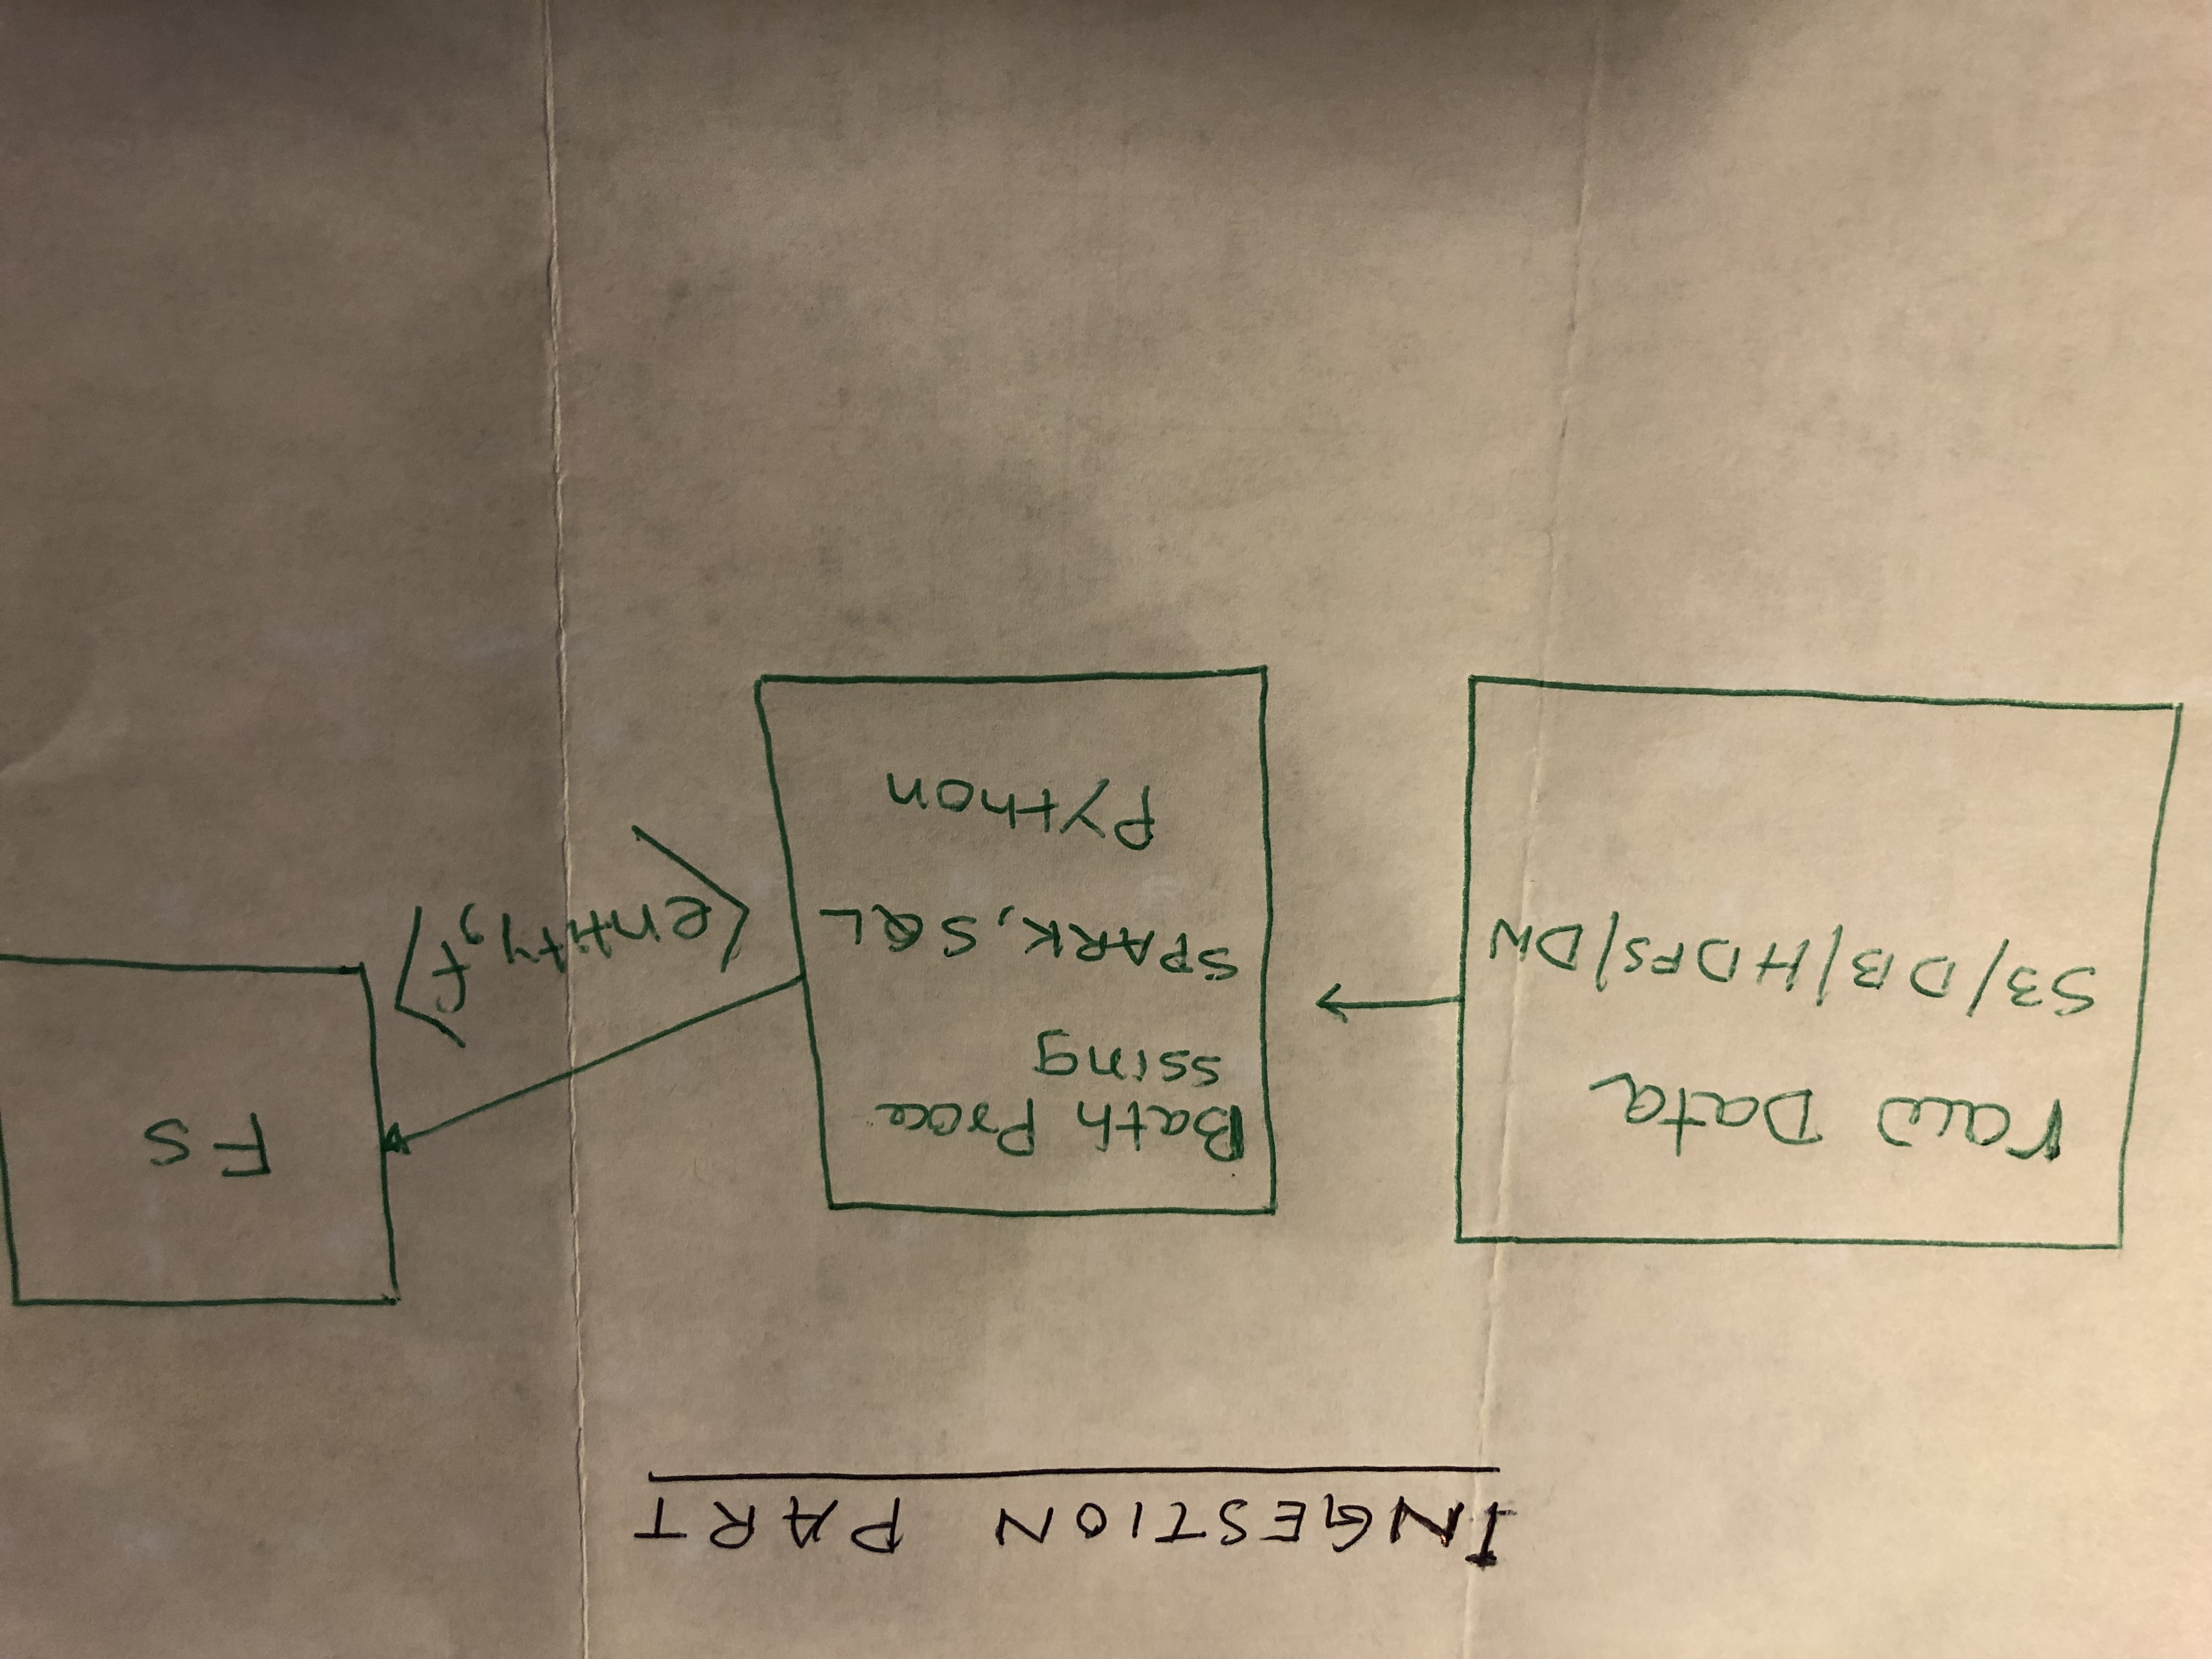 INGESTION PART
raw Data
S3/DB/HDFS/DW
Bath Proce
ssing
SPARK, SQL
Python
<entity,f>
FS